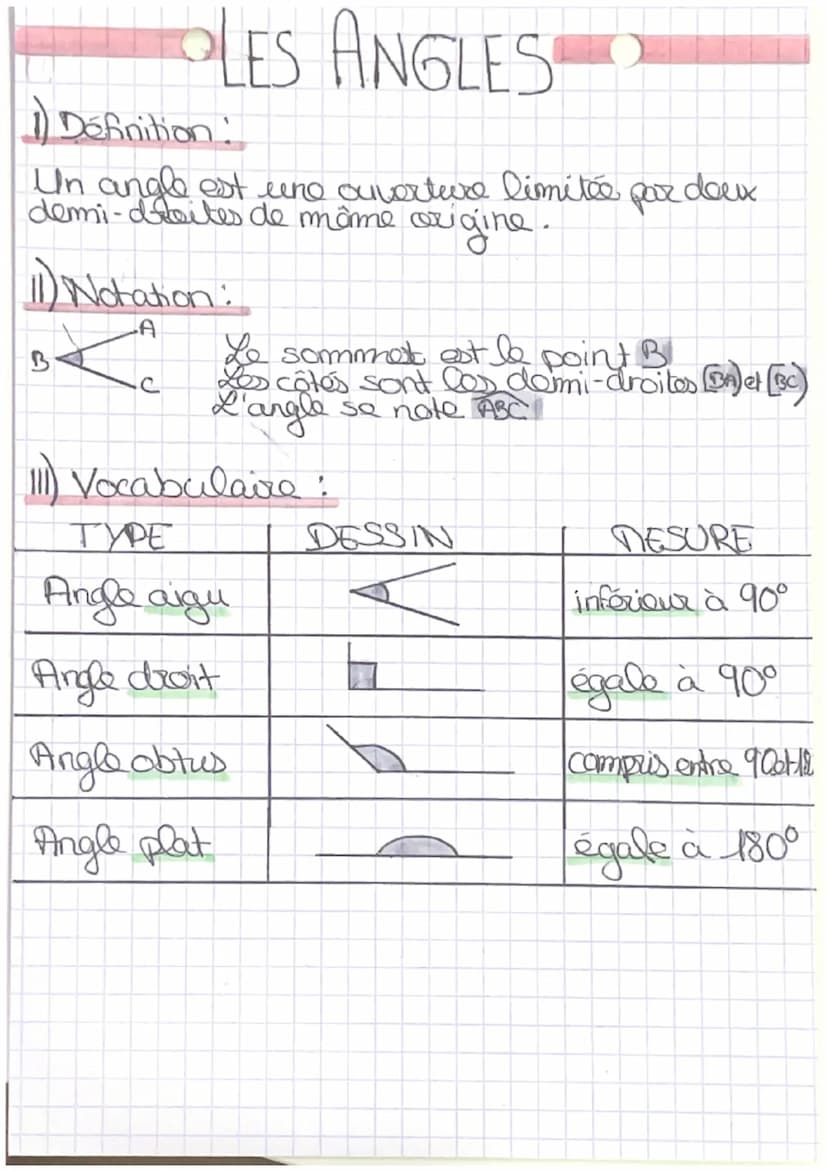 LES ANGLES
I) Définition :
Un angle est une ouverture limitée par deux
demi-droites de même origine.
II) Notation :
A
B
C
Le sommet est le point B
Les côtés sont les demi-droites [BA) et [BC)
L'angle se note ABC
III) Vocabulaire :
TYPE DESSIN MESURE
Angle aigu inférieur à 90°
Angle droit égale à 90°
Angle obtus compris entre 90et
Angle plat égale à 180°